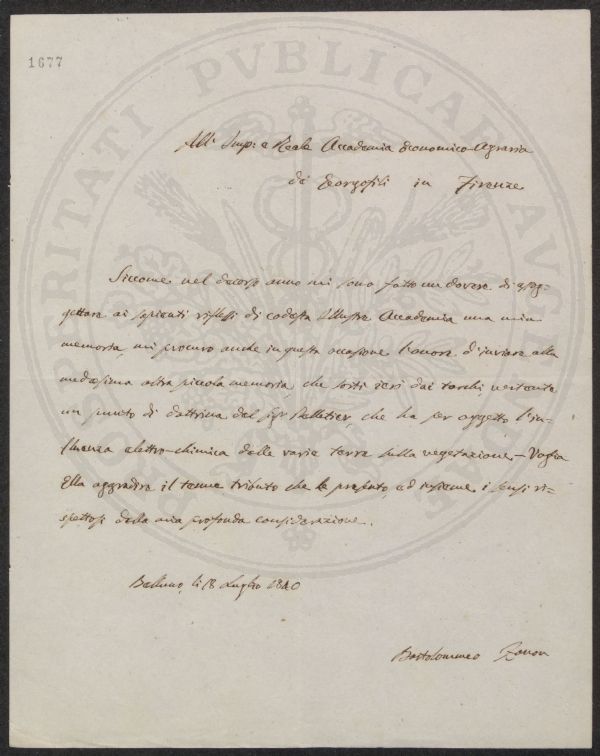 1677
PROSPERITATI PVBLICAE AVGENDAE
All' Imp: e Reale Accademia Economico-Agraria
de' Georgofili in Firenze
Siccome nel decorso anno mi sono fatto un dovere di assog-
gettare ai sapienti riflessi di codesta Illustre Accademia una mia
memoria, mi procuro anche in questa occasione l'onore d'inviare alla
medesima altra piccola memoria, che sortì ieri dai torchj, vertente
un punto di dottrina del Sigr Pelletier, che ha per oggetto l'in-
fluenza elettro-chimica delle varie terre sulla vegetazione. – Voglia
Ella aggradire il tenue tributo che le presento, ed insieme i sensi ri-
spettosi della mia profonda considerazione.
Belluno, li 18 Luglio 1840
Bartolommeo Zanon